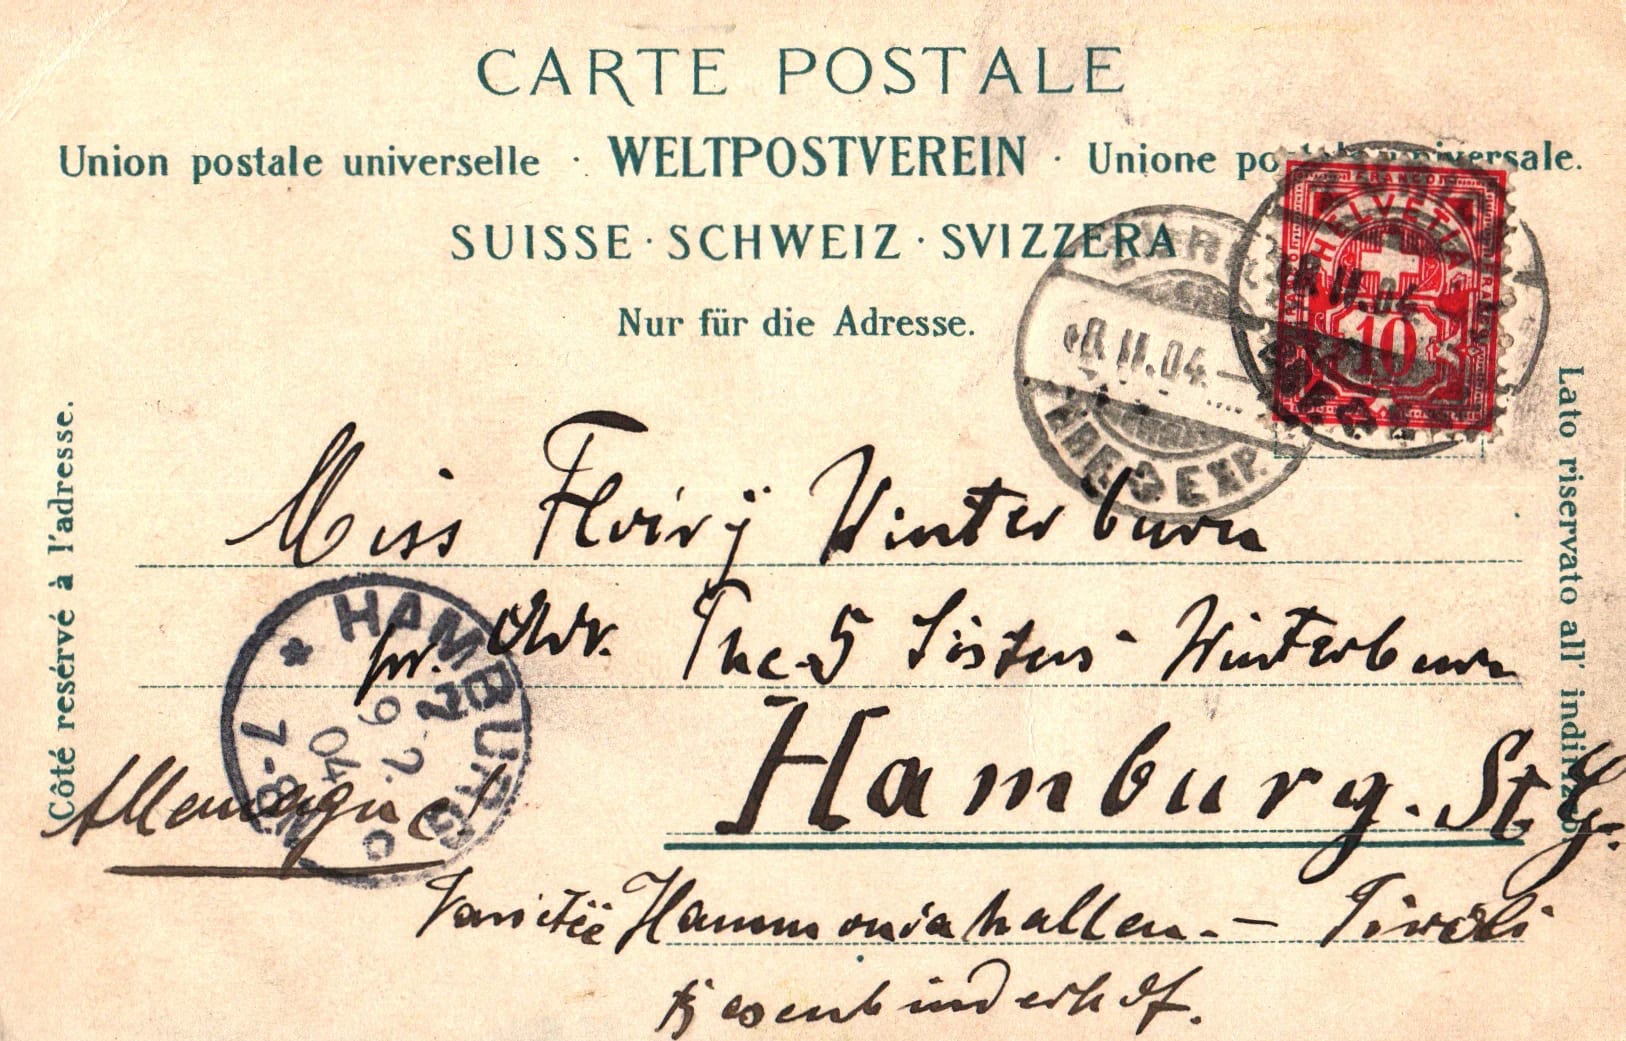 CARTE POSTALE
Union postale universelle · WELTPOSTVEREIN · Unione postale universale.
SUISSE · SCHWEIZ · SVIZZERA
Nur für die Adresse.
FRANCO
HELVETIA
10
8.II.04
8.II.04.—
BRF. EXP.
Côté resérvé à l'adresse.
Lato riservato all' indirizzo
Miss Winterburn
pr. Adr. The 5 Sisters Winterburn
HAMBURG
9 2. 04
7-8
Hamburg. St. G.
Allemagne!
Varietée Hammoniahallen. — Tivoli
Besenbinderhof.